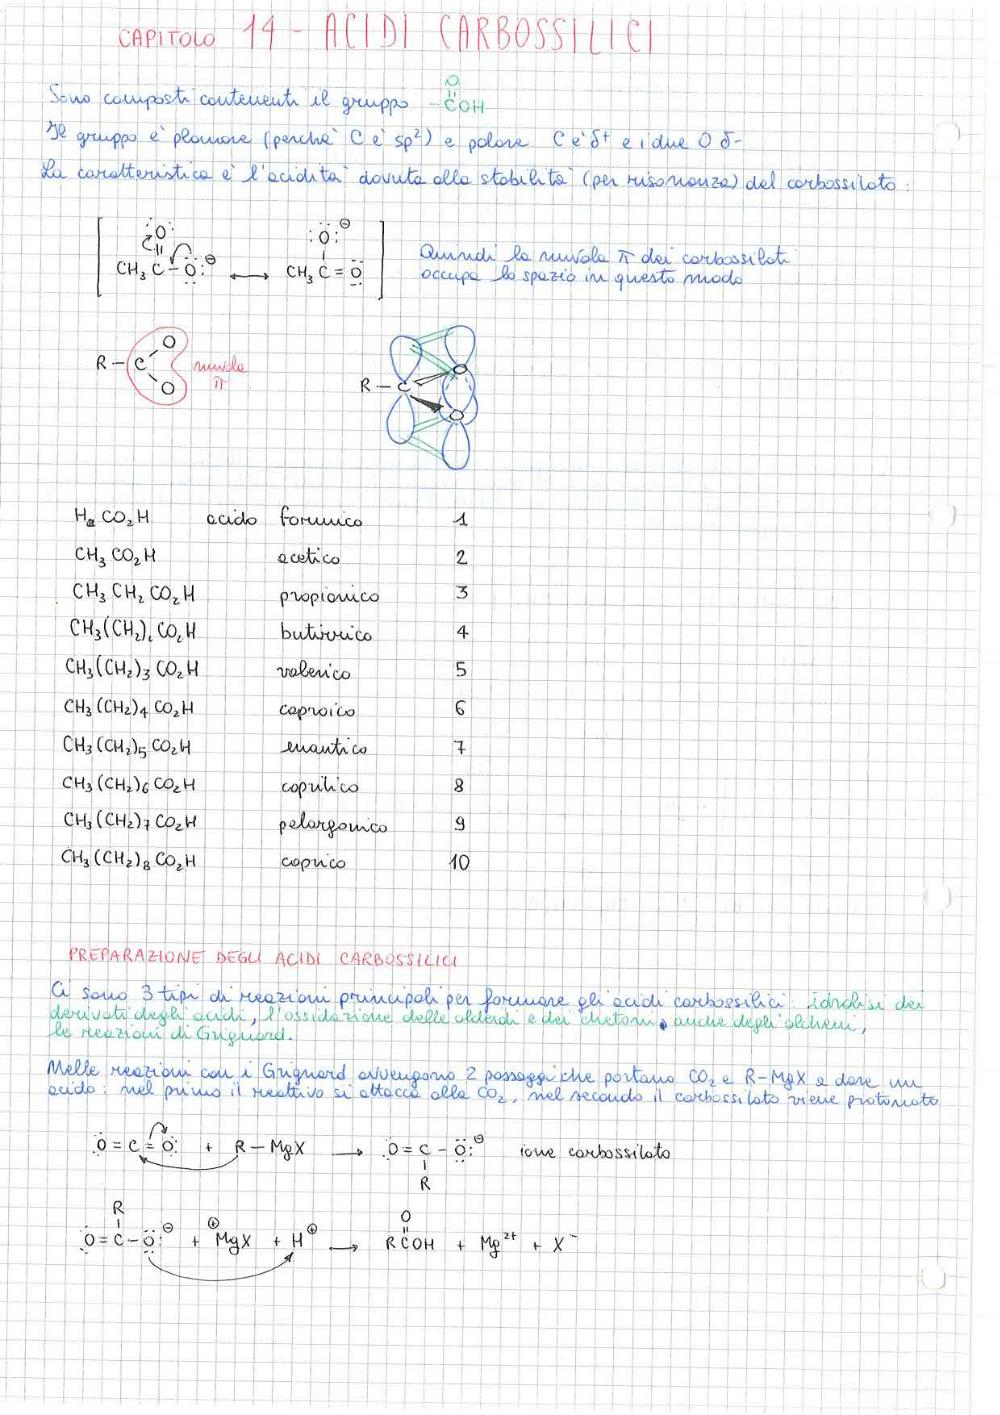 CAPITOLO 14 - ACIDI CARBOSSILICI
O
Sono composti contenenti il gruppo -COH
Il gruppo è planare (perchè C è sp²) e polare C è δ+ e i due O δ-
La caratteristica è l'acidità dovuta alla stabilità (per risonanza) del carbossilato:
:O: :O:⊖
CH₃ C - O:⊖ ⟷ CH₃ C = O
Quindi la nuvola π dei carbossilati
occupa lo spazio in questo modo
O
R - C nuvola
O π
R - C O
O
H CO₂H acido formico 1
CH₃ CO₂H acetico 2
CH₃ CH₂ CO₂H propionico 3
CH₃(CH₂)₂ CO₂H butirrico 4
CH₃(CH₂)₃ CO₂H valerico 5
CH₃(CH₂)₄ CO₂H caproico 6
CH₃(CH₂)₅ CO₂H enantico 7
CH₃(CH₂)₆ CO₂H caprilico 8
CH₃(CH₂)₇ CO₂H pelargonico 9
CH₃(CH₂)₈ CO₂H caprico 10
PREPARAZIONE DEGLI ACIDI CARBOSSILICI
Ci sono 3 tipi di reazioni principali per formare gli acidi carbossilici: idrolisi dei
derivati degli acidi, l'ossidazione delle aldeidi e dei chetoni, anche degli alcheni,
le reazioni di Grignard.
Nelle reazioni con i Grignard avvengono 2 passaggi che portano CO₂ e R-MgX a dare un
acido: nel primo il reattivo si attacca alla CO₂, nel secondo il carbossilato viene protonato
O = C = O: + R - MgX → O = C - O:⊖ ione carbossilato
R
R O
O = C - O:⊖ + ⊕MgX + H⊕ → RCOH + Mg²⁺ + X⁻